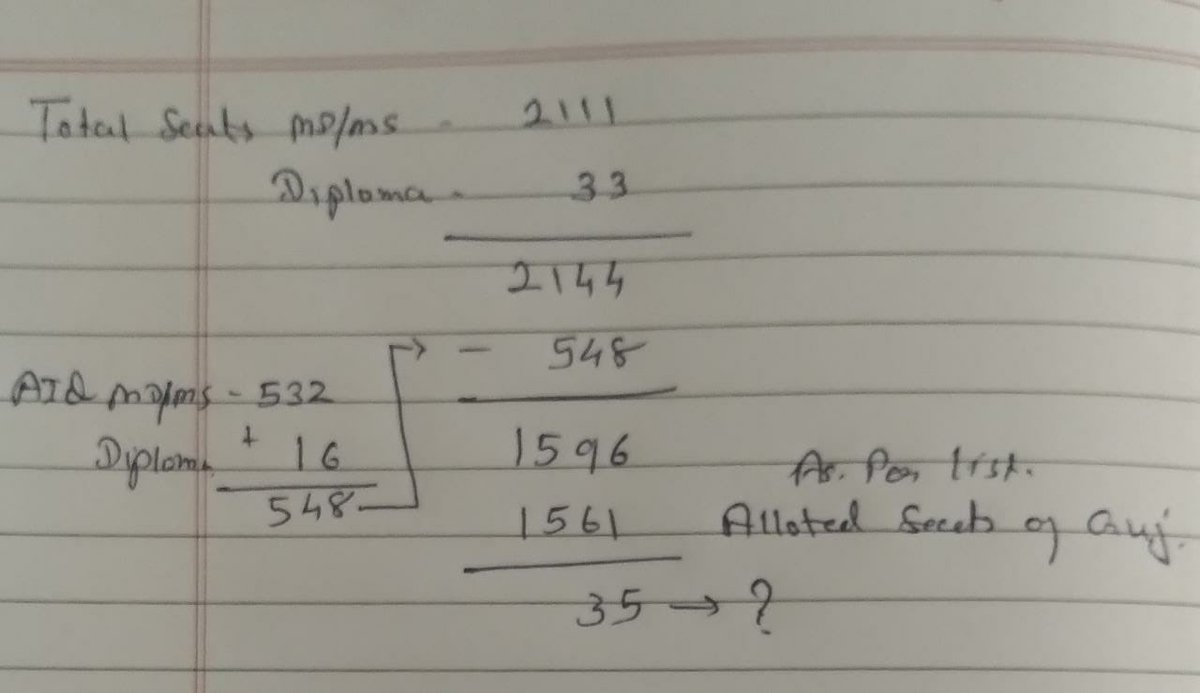 Total Seats MD/MS - 2111
Diploma - 33
2144
- 548
AIQ MD/MS - 532
Diploma + 16
548
1596
As. Per list.
1561 Alloted Seats of Guj.
35 → ?